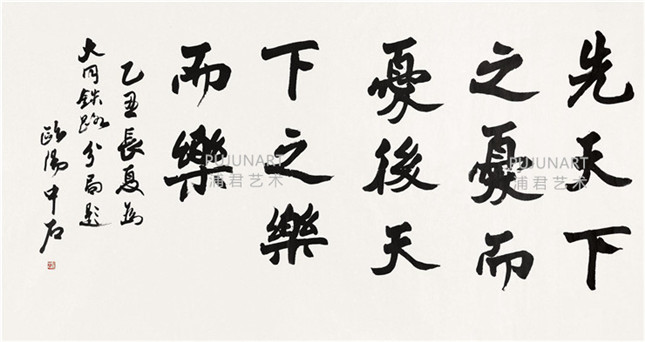 先天下
之憂而
憂後天
下之樂
而樂
乙丑長夏為
大同鉄路分局題
欧陽中石
PUJUNART
浦君艺术
PUJUNART
浦君艺术